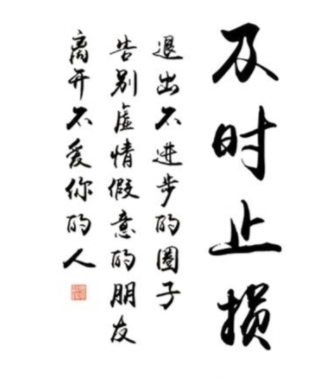 及时止损
退出不进步的圈子
告别虚情假意的朋友
离开不爱你的人